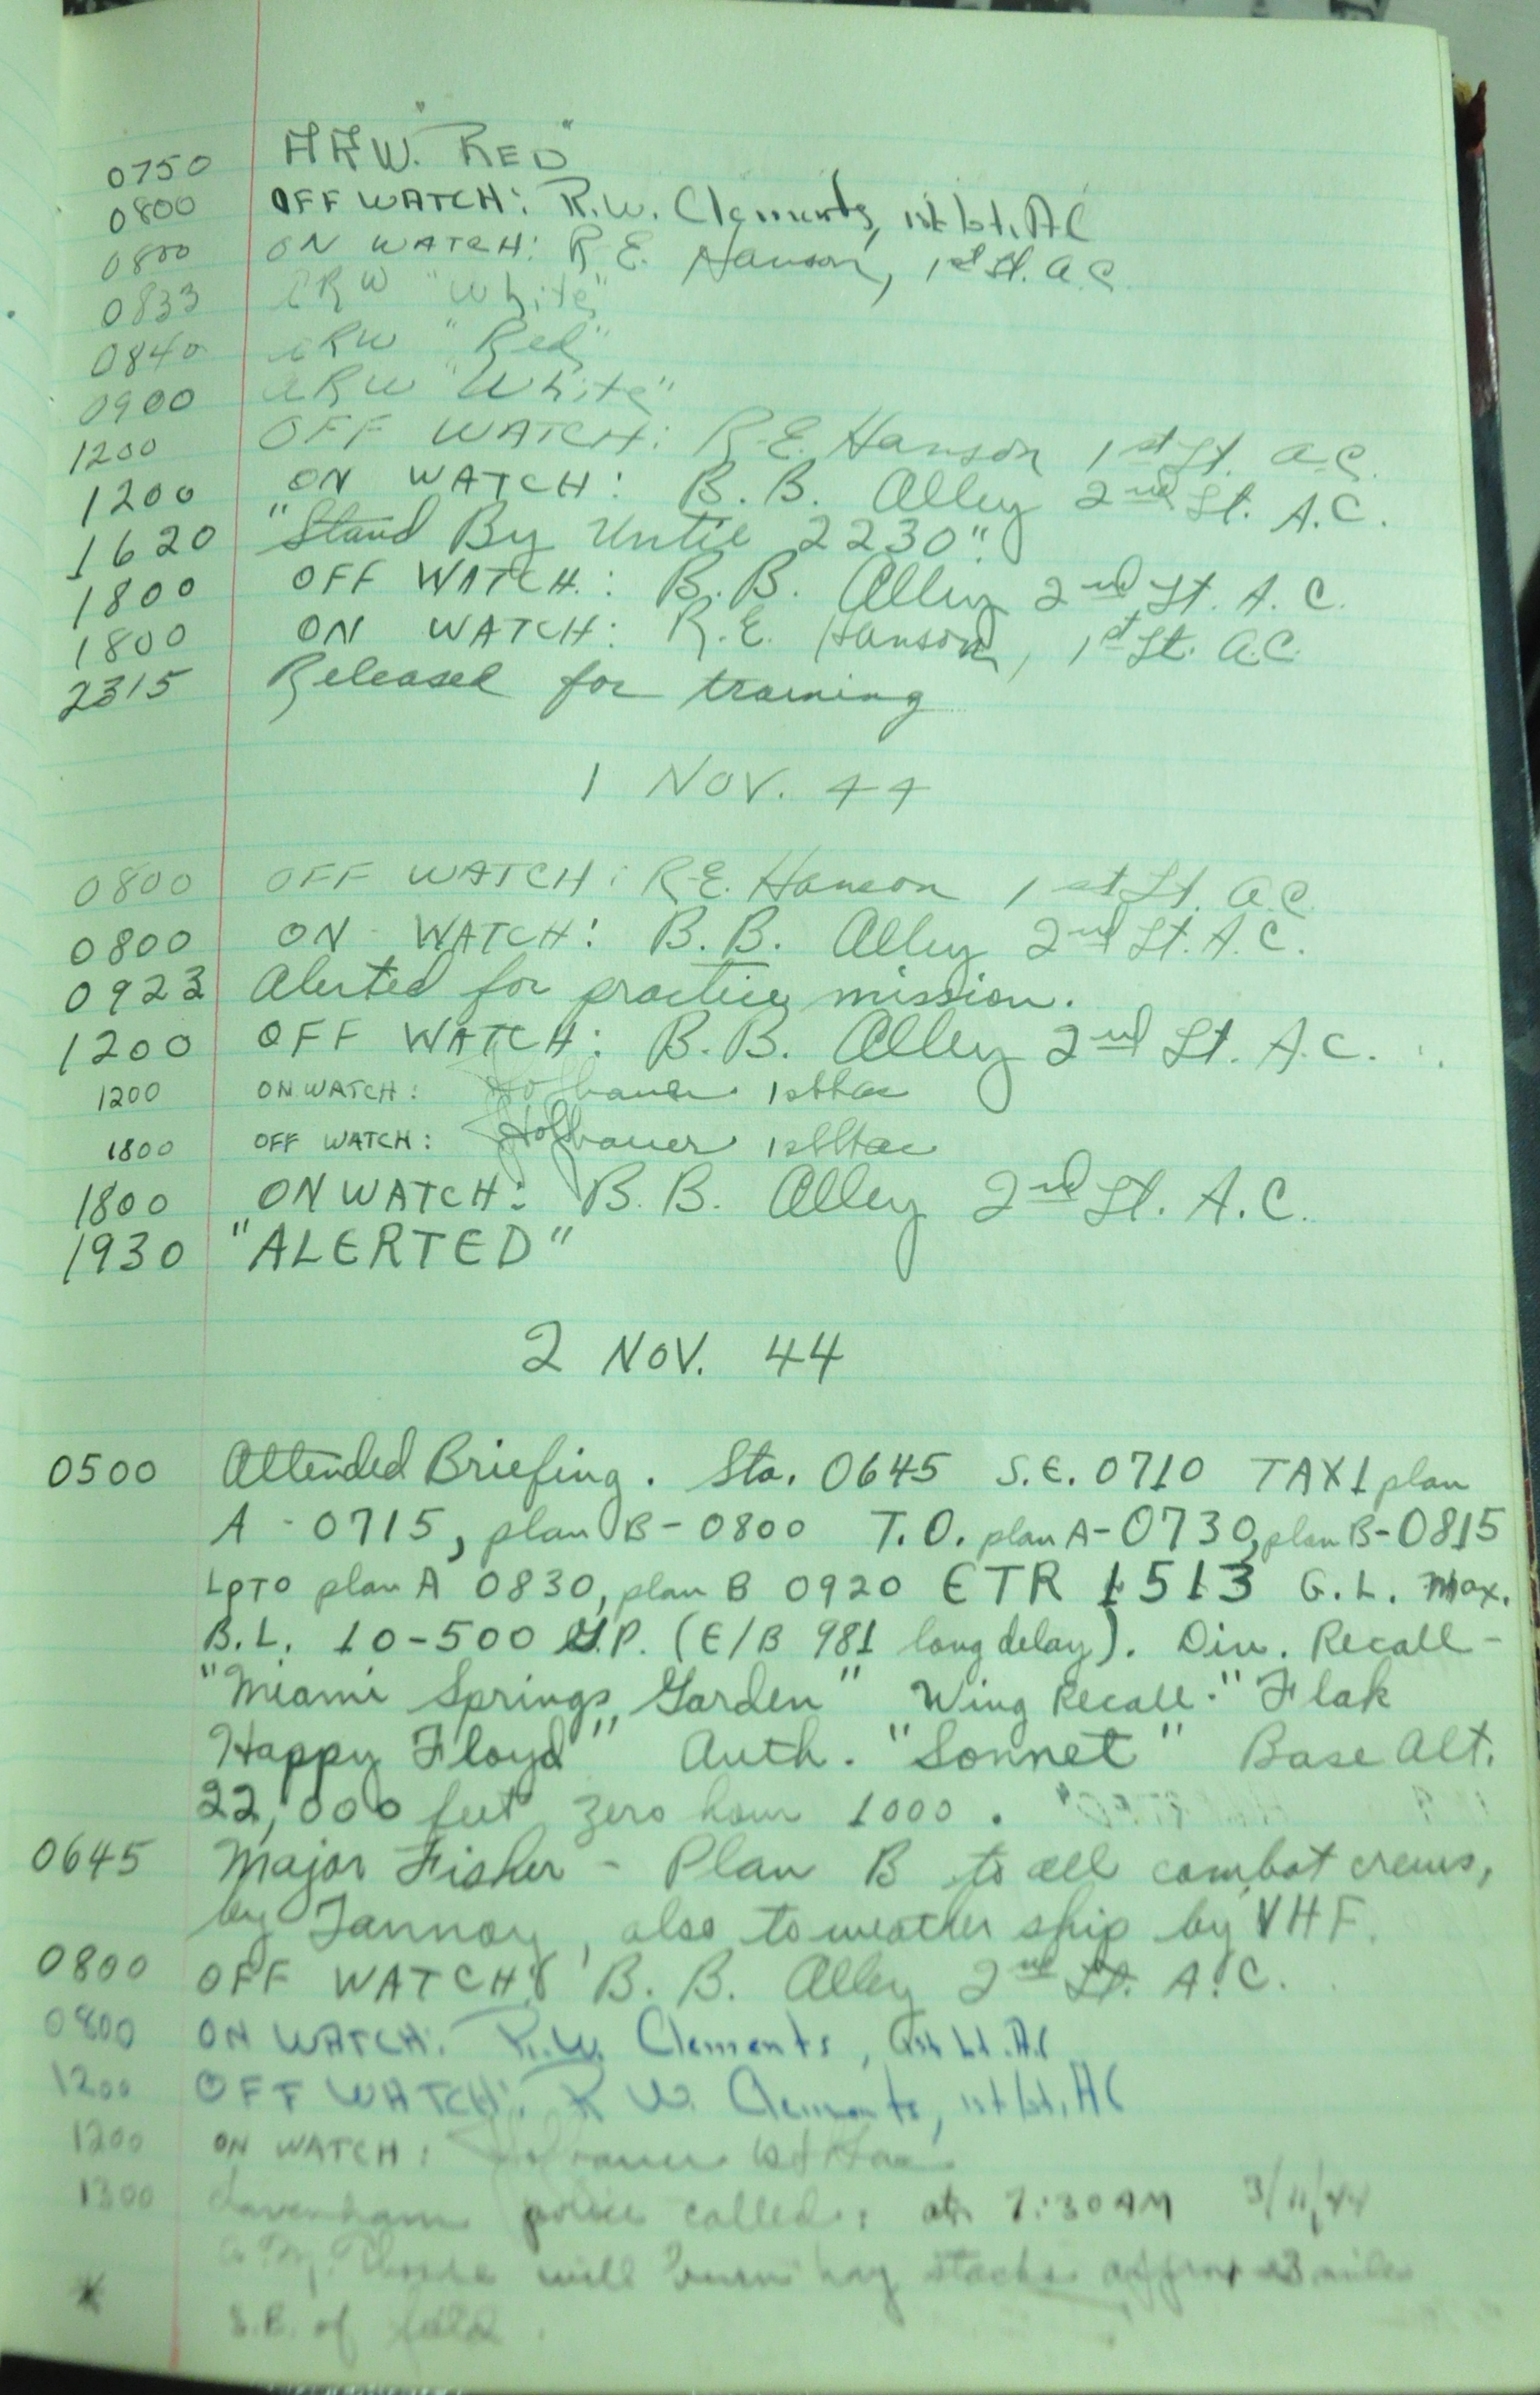 0750 ARW. "RED"
0800 OFF WATCH: R.W. Clements, 1st Lt. AC
0800 ON WATCH: R.E. Hanson, 1st Lt. A.C.
0833 ARW "White"
0840 ARW "Red"
0900 ARW "White"
1200 OFF WATCH: R.E. Hanson 1st Lt. A.C.
1200 ON WATCH: B.B. Alley 2nd Lt. A.C.
1620 "Stand By Until 2230".
1800 OFF WATCH: B.B. Alley 2nd Lt. A.C.
1800 ON WATCH: R.E. Hanson, 1st Lt. A.C.
2315 Released for training
1 NOV. 44
0800 OFF WATCH: R.E. Hanson 1st Lt. A.C.
0800 ON WATCH: B.B. Alley 2nd Lt. A.C.
0923 Alerted for practice mission.
1200 OFF WATCH: B.B. Alley 2nd Lt. A.C.
1200 ON WATCH: Hofbauer 1st Lt ac
1800 OFF WATCH: Hofbauer 1st Lt ac
1800 ON WATCH: B.B. Alley 2nd Lt. A.C.
1930 "ALERTED"
2 NOV. 44
0500 Attended Briefing. Sta. 0645 S.E. 0710 TAXI plan
A - 0715, plan B - 0800 T.O. plan A - 0730, plan B - 0815
LPTO plan A 0830, plan B 0920 ETR 1513 G.L. Max.
B.L. 10-500 G.P. (E/B 981 long delay). Div. Recall -
"Miami Springs Garden" Wing Recall - "Flak
Happy Floyd" Auth. "Sonnet" Base Alt.
22,000 feet zero hour 1000.
0645 Major Fisher - Plan B to all combat crews,
by Tannoy, also to weather ship by VHF.
0800 OFF WATCH: B.B. Alley 2nd Lt. A.C.
0800 ON WATCH: R.W. Clements, 1st Lt. AC
1200 OFF WATCH: R W. Clements, 1st Lt. AC
1200 ON WATCH: Hofbauer 1st Lt ac
1300 Lavenham police called: at 7:30 AM 3/11/44
will burn hay stacks approx 3 miles
S.E. of field.